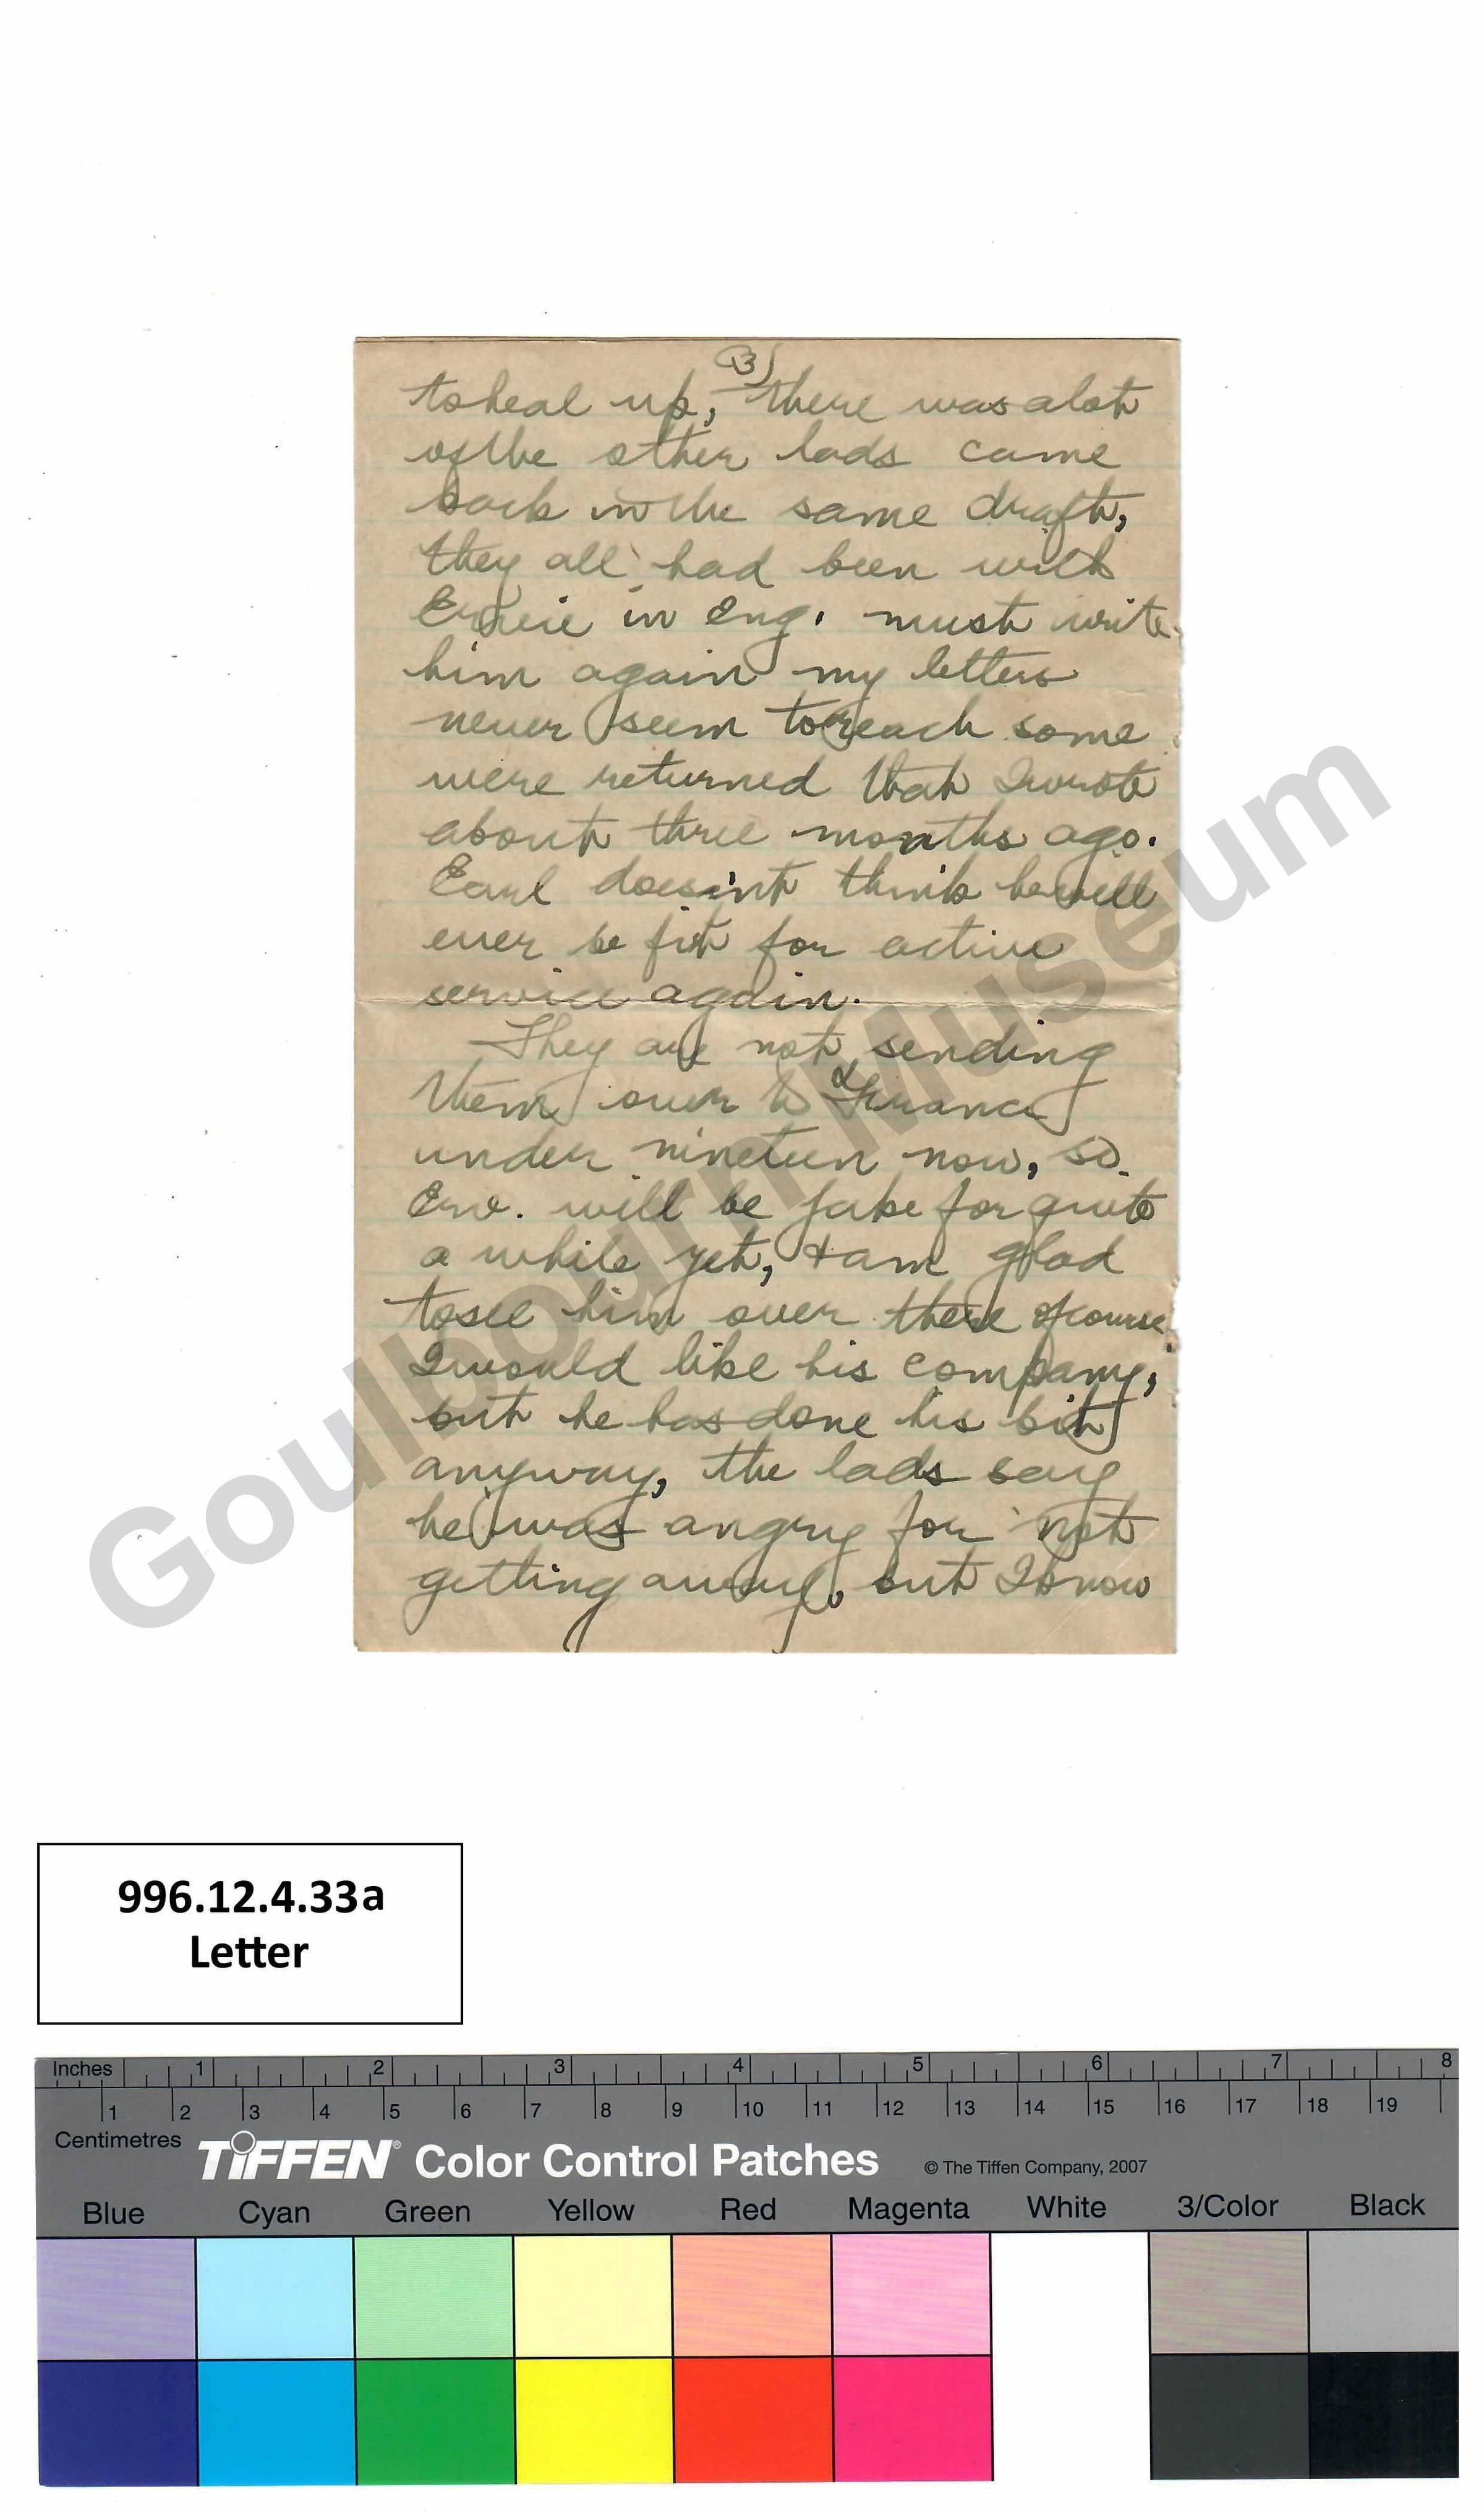 (3)
to heal up, there was a lot
of the other lads came
back in the same draft,
they all had been with
Ervie in Eng. must write
him again my letters
never seem to reach some
were returned that I wrote
about three months ago.
Earl doesn't think he will
ever be fit for active
service again.
They are not sending
them over to France
under nineteen now, so
Erv. will be jake for quite
a while yet, & am glad
to see him over there of course
I would like his company,
but he has done his bit
anyway, the lads say
he was angry for not
getting away, but I know
Goulbourn Museum
996.12.4.33a
Letter
Inches 1 2 3 4 5 6 7 8
1 2 3 4 5 6 7 8 9 10 11 12 13 14 15 16 17 18 19
Centimetres
TIFFEN® Color Control Patches © The Tiffen Company, 2007
Blue Cyan Green Yellow Red Magenta White 3/Color Black